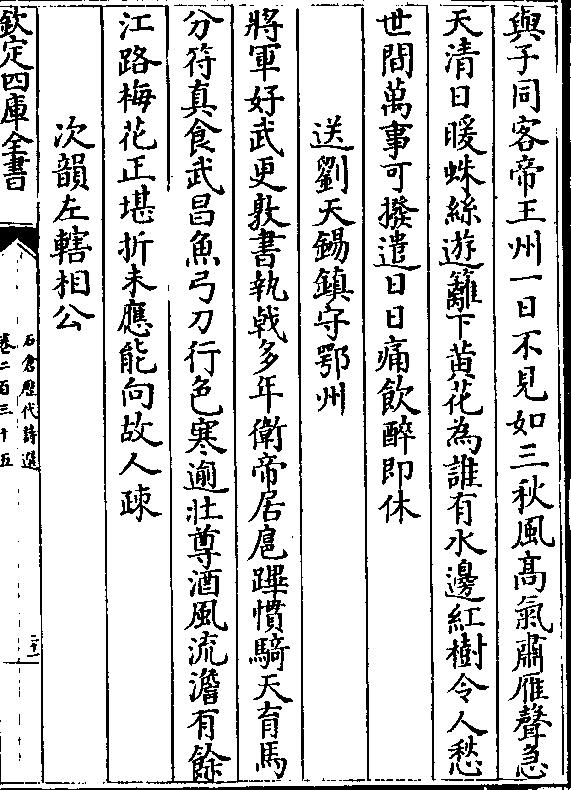 與子同客帝王州一日不見如三秋風髙氣肅雁聲急
天清日暖蛛絲遊籬下黄花為誰有水邊紅樹令人愁
世間萬事可撥遣日日痛飲醉即休
送劉天錫鎮守鄂州
將軍好武更敦書執戟多年衛帝居扈蹕慣騎天育馬
分符真食武昌魚弓刀行色寒逾壯尊酒風流澹有餘
江路梅花正堪折未應能向故人疎
次韻左轄相公
欽定四庫全書
石倉歴代詩選
卷二百三十五